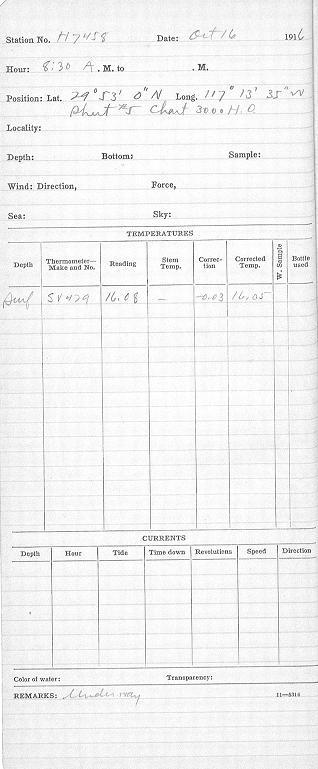 Station No. H7458 Date: Oct 16 1916
Hour: 8:30 A. M. to . M.
Position: Lat. 29° 53' 0" N Long. 117° 13' 35" W
Sheet #5 Chart 3000 H.O.
Locality:
Depth: Bottom: Sample:
Wind: Direction, Force,
Sea: Sky:
TEMPERATURES
Depth Thermometer—Make and No. Reading Stem Temp. Correc-tion Corrected Temp. W. Sample Bottle used
Surf SV429 16.08 – -0.03 16.05
CURRENTS
Depth Hour Tide Time down Revolutions Speed Direction
Color of water: Transparency:
REMARKS: Under way 11—5314